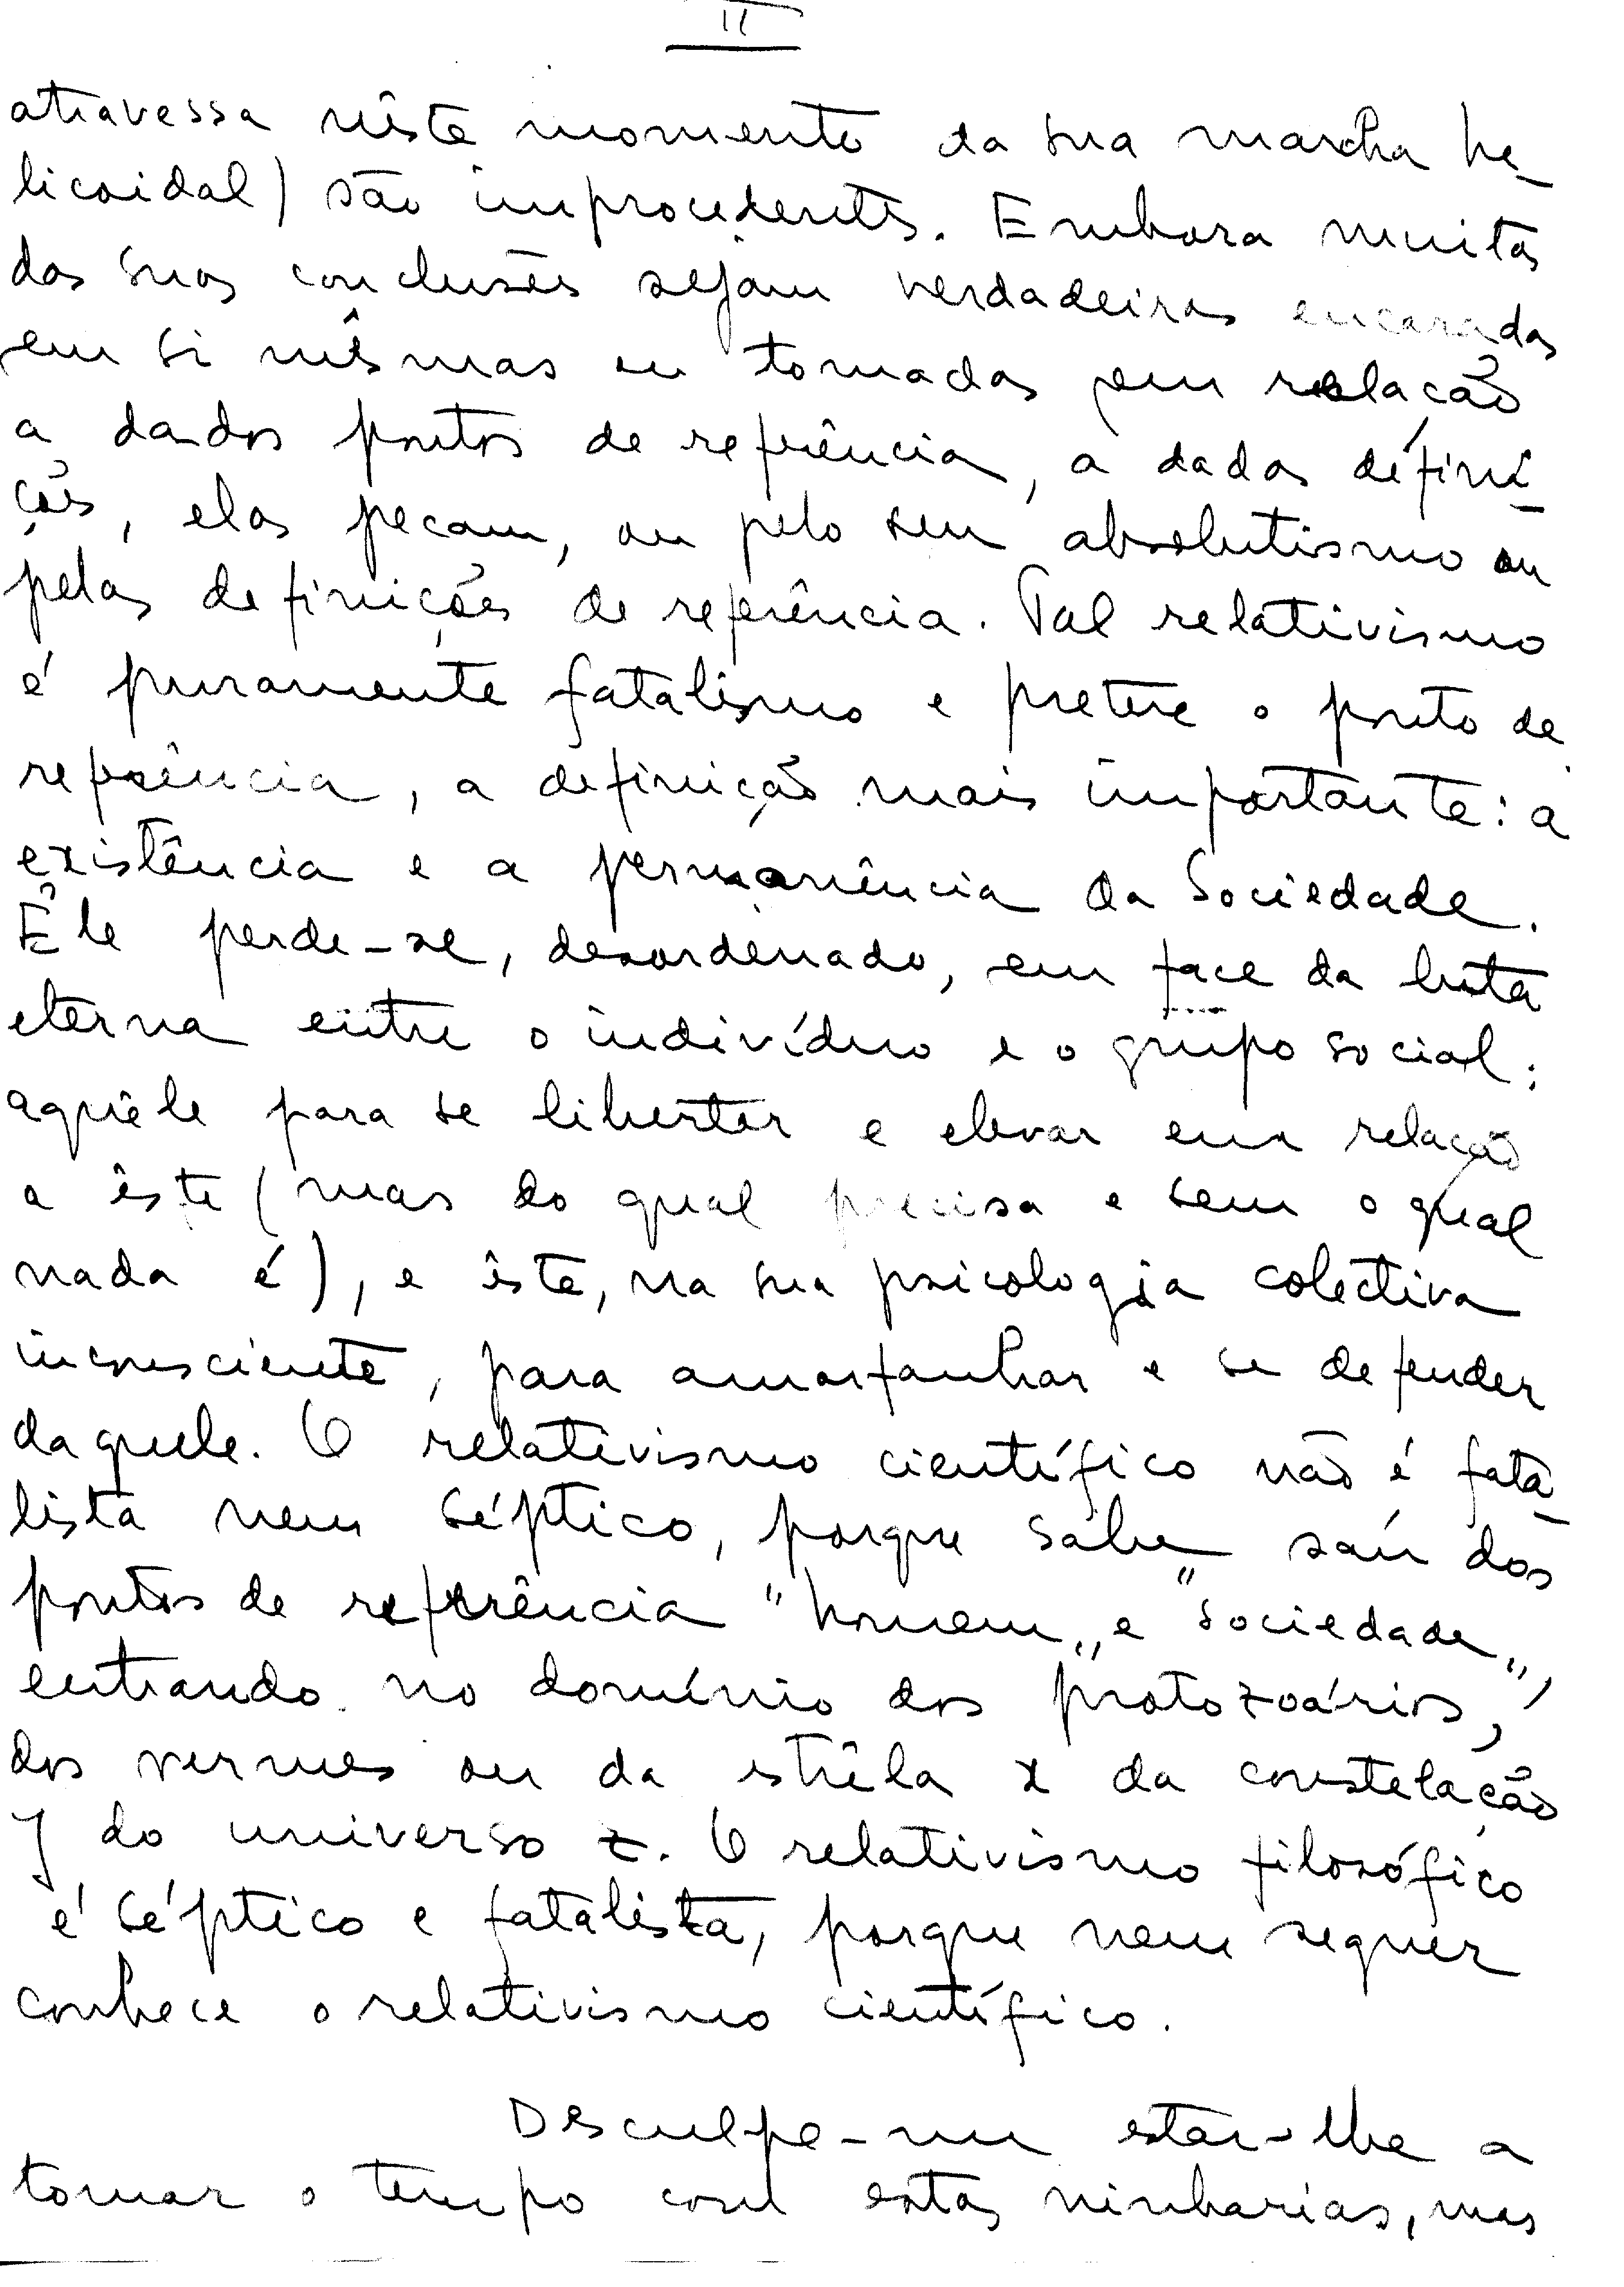 II
atravessa nêste momento da sua marcha he-
licoidal) são improcedentes. Embora muitas
das suas conclusões sejam verdadeiras encaradas
em si mêsmas ou tomadas em relação
a dados pontos de referência, a dadas defini-
ções, elas pecam, ou pelo seu absolutismo ou
pelas definições de referência. Tal relativismo
é puramente fatalismo e pretere o ponto de
referência, a definição mais importante: a
existência e a permanência da Sociedade.
Êle perde-se, desordenado, em face da luta
eterna entre o indivíduo e o grupo social:
aquêle para se libertar e elevar em relação
a êste (mas do qual precisa e sem o qual
nada é), e êste, na sua psicologia colectiva
inconsciente, para amorfanhar e se defender
daquele. O relativismo científico não é fata-
lista nem séptico, porque sabe saír dos
pontos de referência "homem" e "sociedade",
entrando no domínio dos "protozoários",
dos vermes ou da estrêla x da constelação
y do universo z. O relativismo filosófico
é séptico e fatalista, porque nem sequer
conhece o relativismo científico.
Desculpe-me estar-lhe a
tomar o tempo com estas ninharias, mas